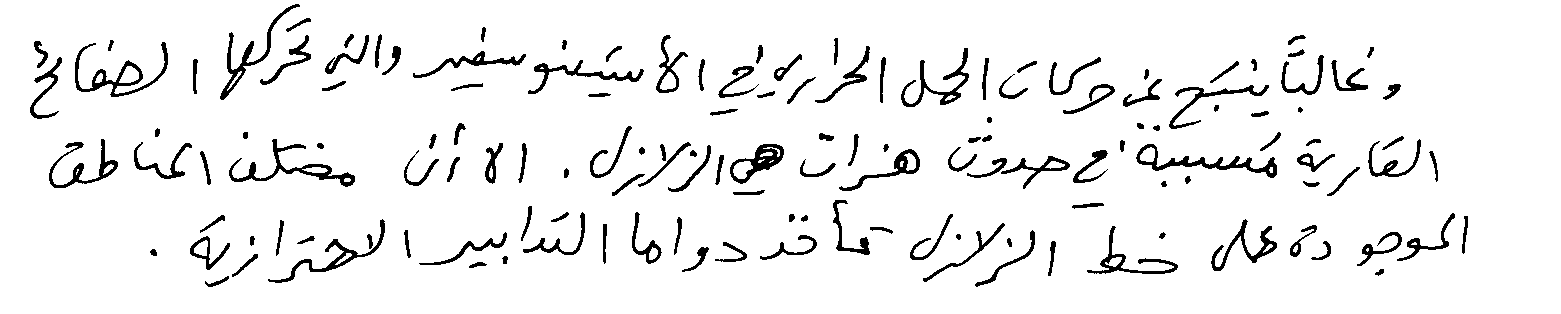 وغالبًا ينتج عن حركات الحمل الحراري في الأستينوسفير والتي تحركها الصفائح
القارية مسببة في حدوث هزات هي الزلازل. الا أن مختلف المناطق
الموجودة على خط الزلازل تأخذ دواما التدابير الاحترازية.